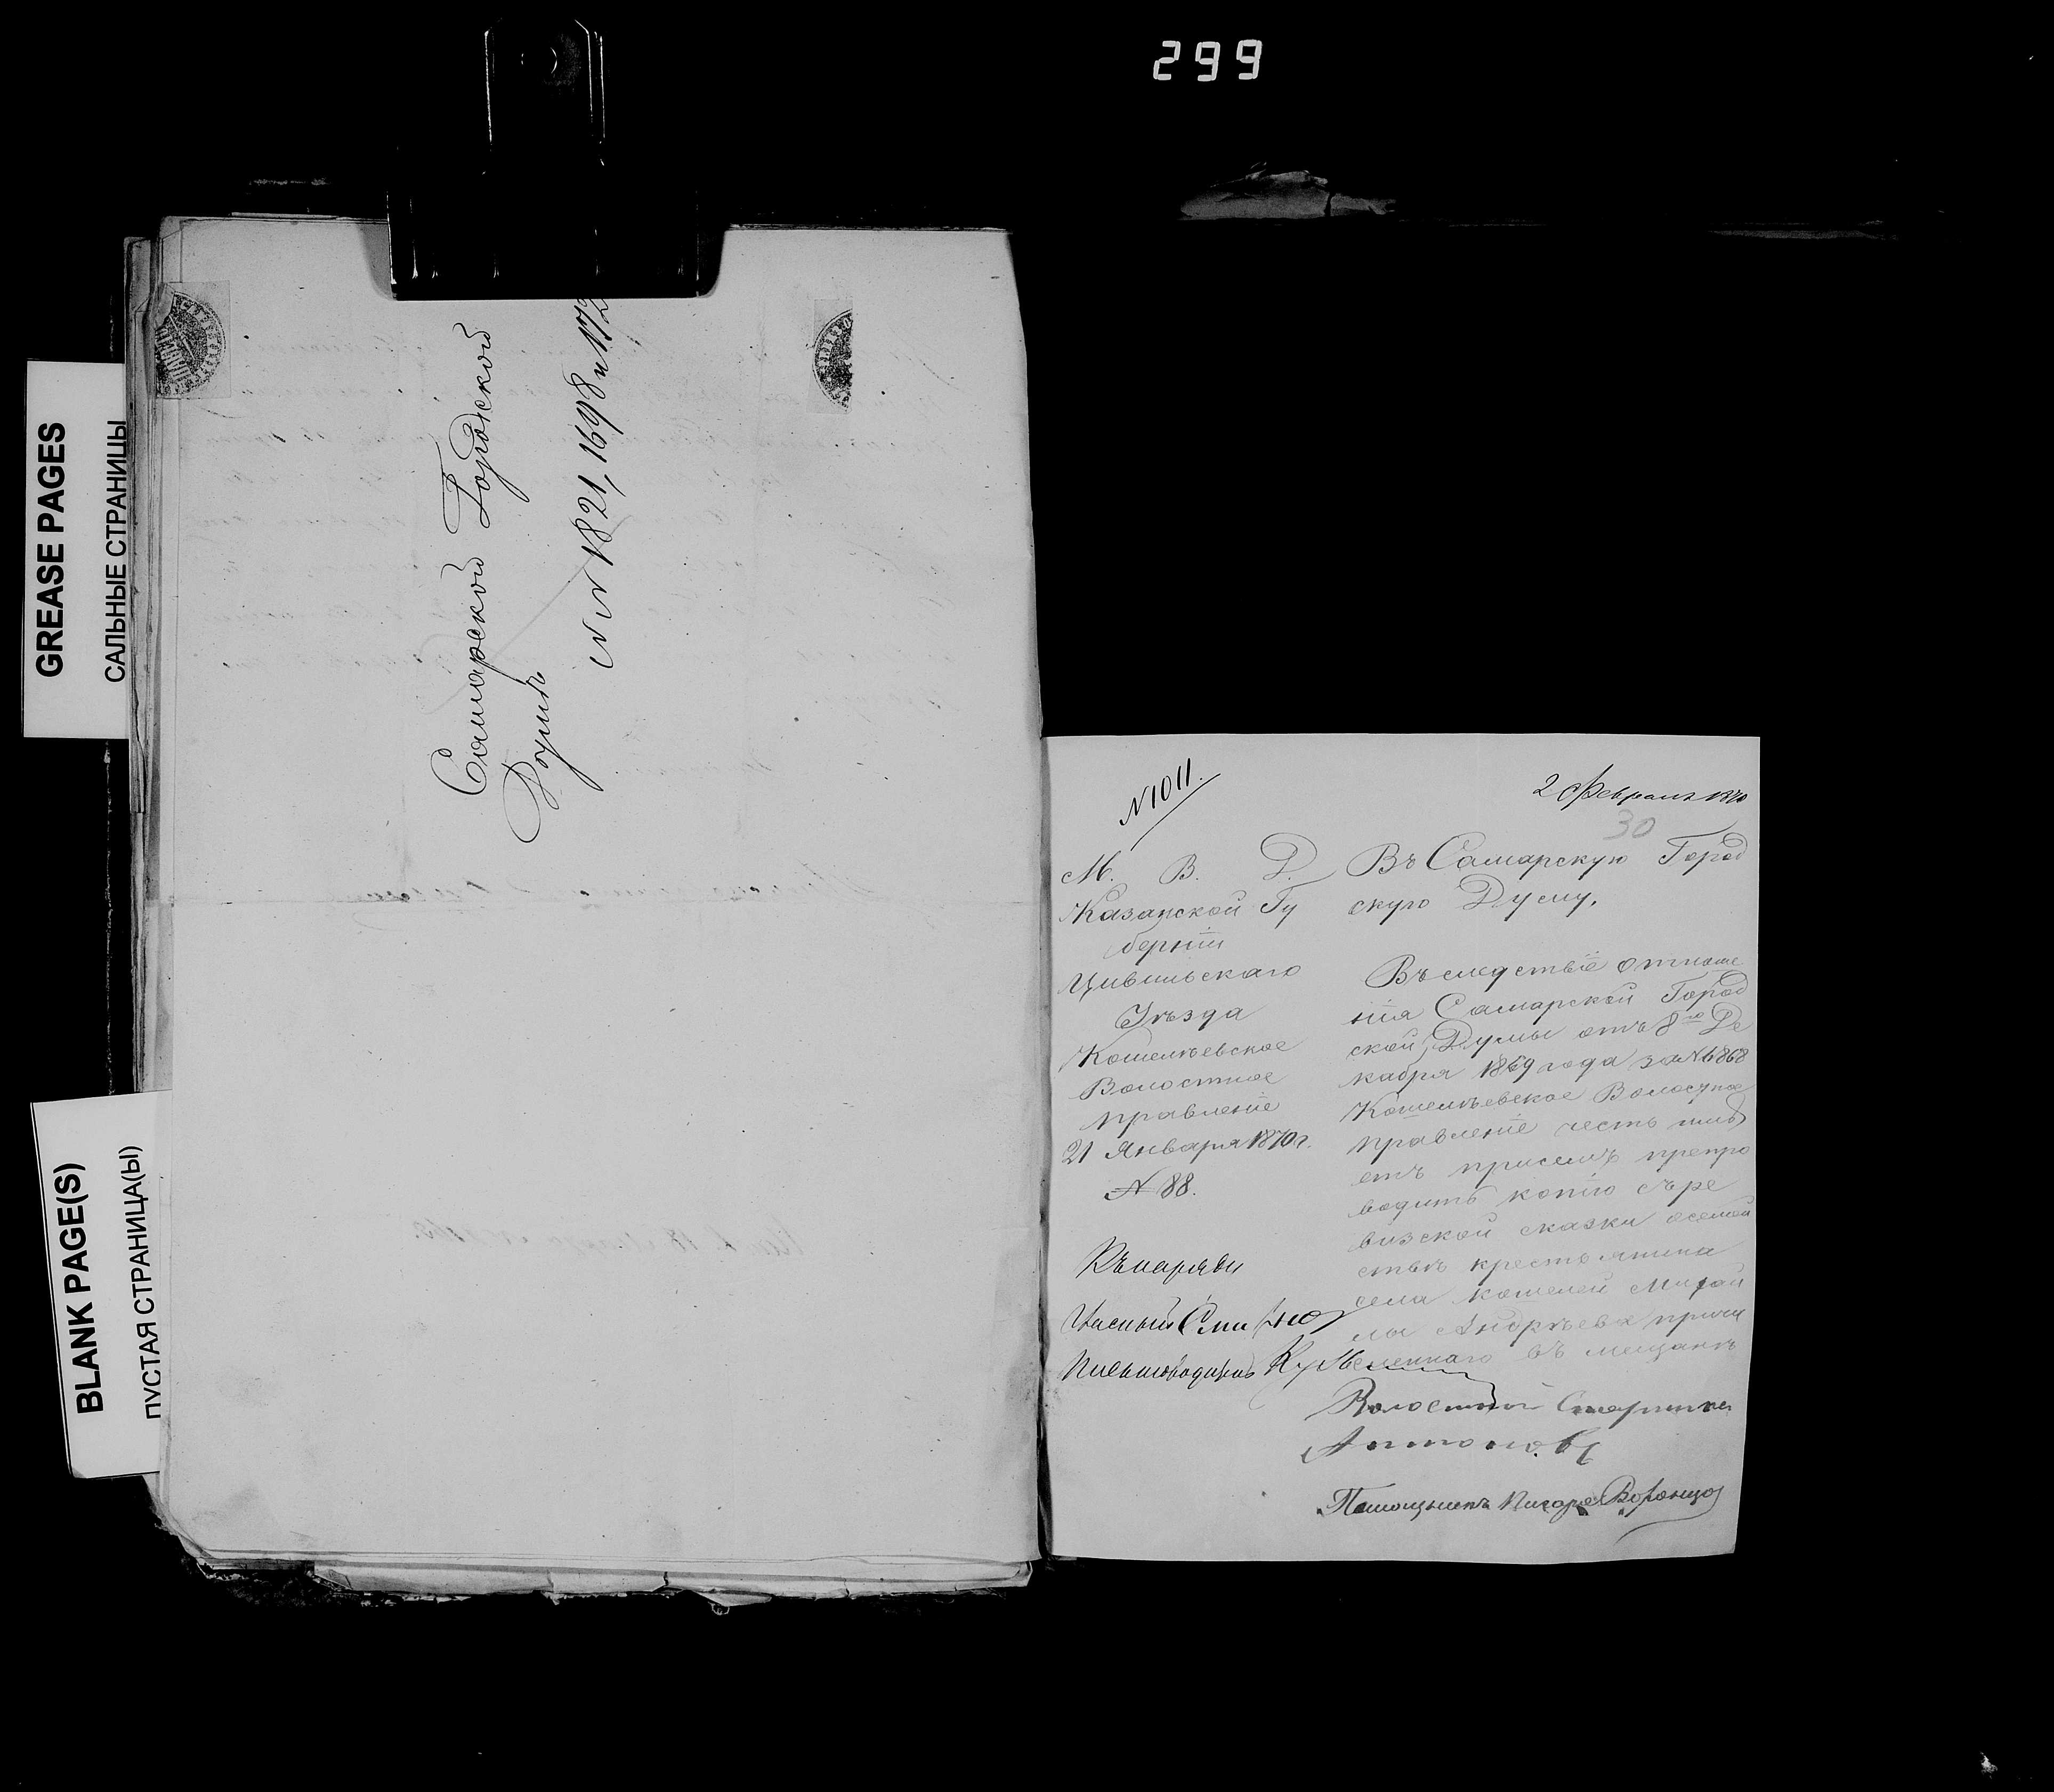 299
GREASE PAGES
САЛЬНЫЕ СТРАНИЦЫ
BLANK PAGE(S)
ПУСТАЯ СТРАНИЦА(Ы)
Самарской Городской
Думѣ
NN 1821, 1698 и 172
N 1011.
2 Февраля 1870
30
М. В. Д.
Казанской Гу
берніи
Цивильскаго
Уѣзда
Кошелѣевское
Волостное
правленіе
21 Января 1870 г.
N 88.
Въ Самарскую Город
скую Думу.
Въ следствіе отноше
нія Самарской Город
ской Думы отъ 8го Де
кабря 1869 года за N 6868
Кошелѣевское Волостное
правленіе честь имѣ
етъ присемъ препро
водить копію съ ре
визской сказки о семей
ствѣ крестьянина
села Кошелей Михай
лы Андрѣева причи
сленнаго въ мещане
Волостной Старшина
Антоновъ
Помощникъ Писаря Воронцов